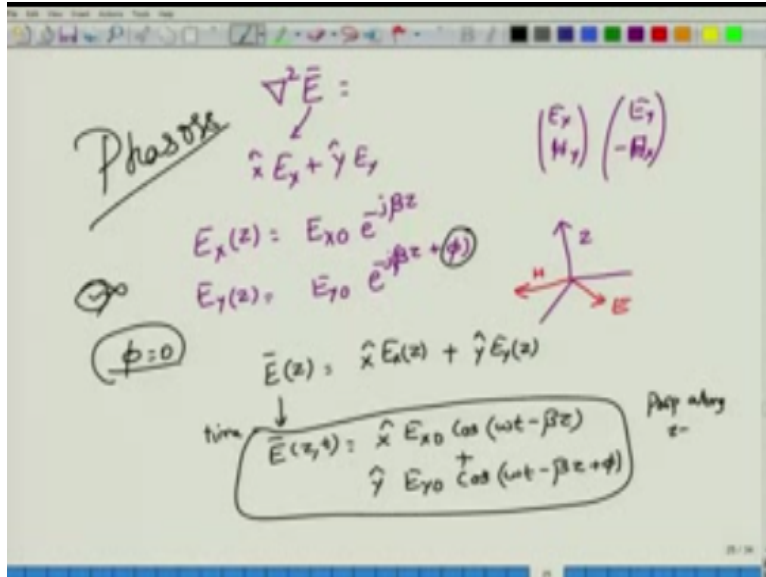 ∇² Ē =
Phasors
x̂ Ex + ŷ Ey
(Ex Hy) (Ey -Hx)
Ex(z) = Ex0 e^-jβz
Ey(z) = Ey0 e^-jβz + φ)
z
H
E
φ=0
Ē(z) = x̂ Ex(z) + ŷ Ey(z)
time
Ē(z,t) = x̂ Ex0 Cos (ωt - βz)
+
ŷ Ey0 Cos (ωt - βz + φ)
Prop along
z-